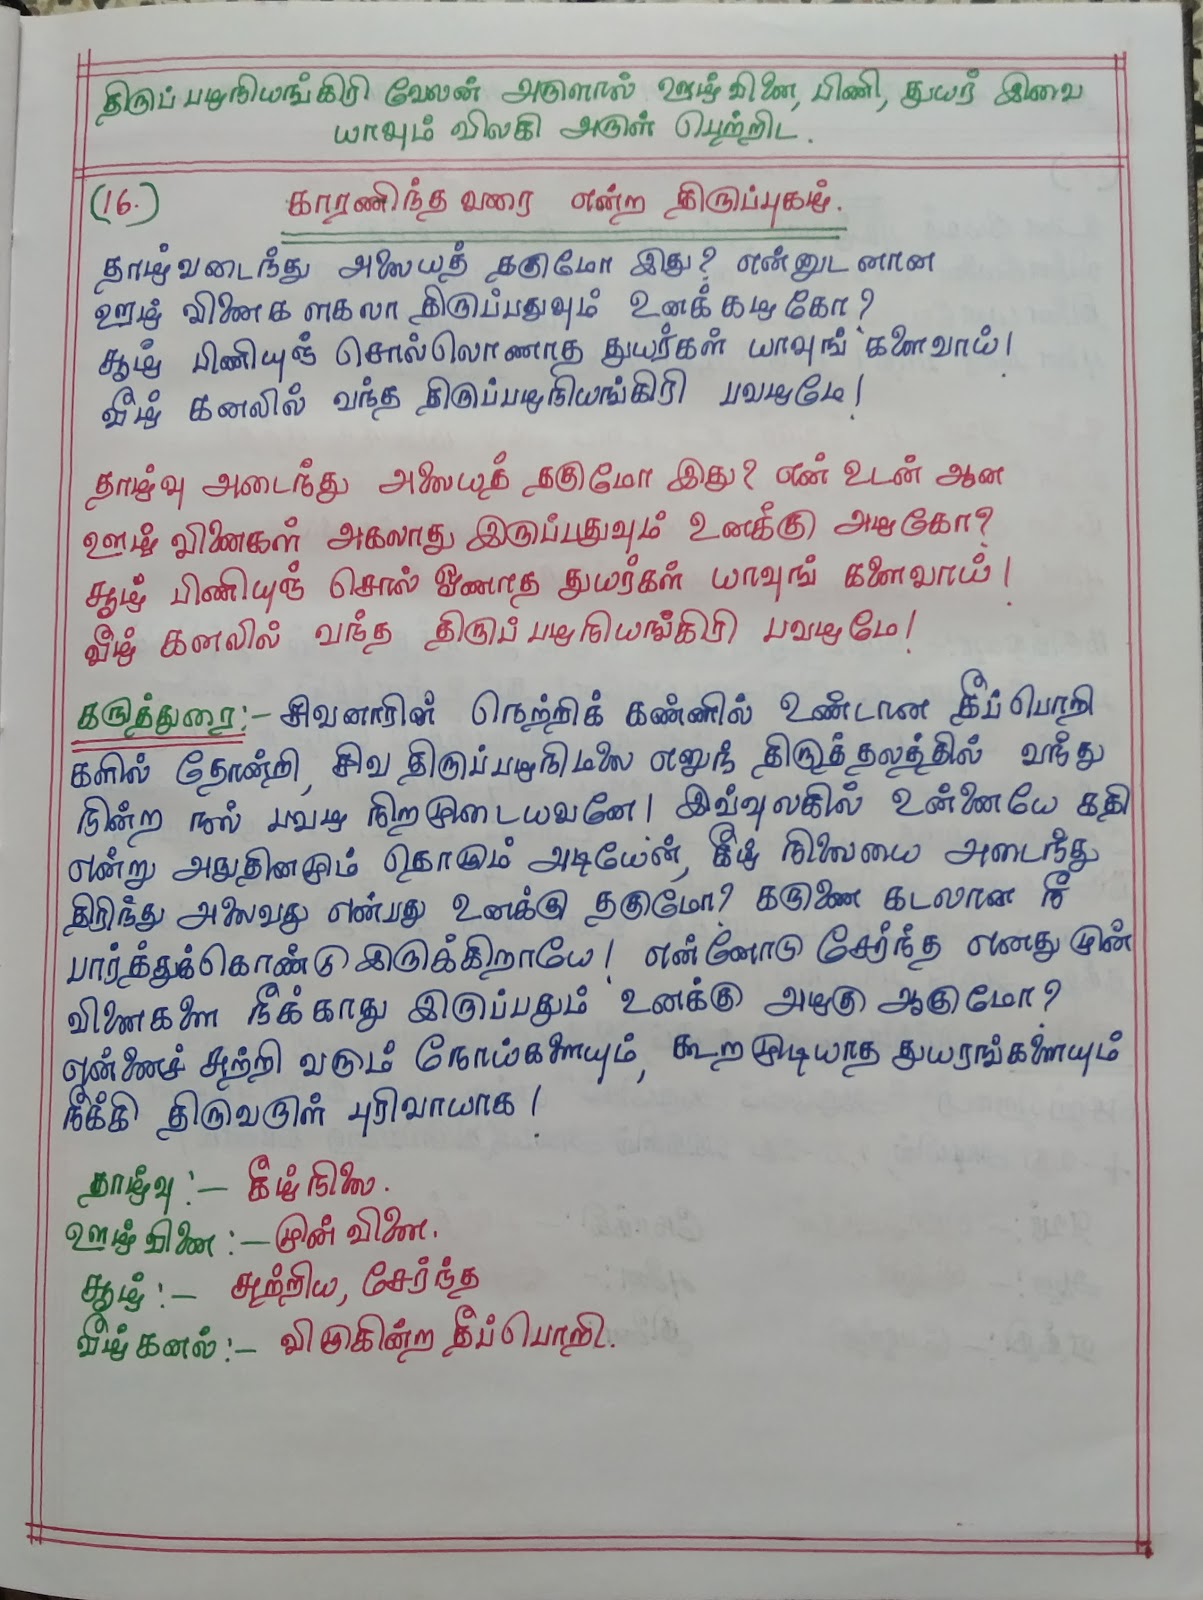 திருப்பழநியங்கிரி வேலன் அருளால் ஊழ்வினை, பிணி, துயர் இவை
யாவும் விலகி அருள் பெற்றிட.
(16.) காரணிந்த வரை என்ற திருப்புகழ்.
தாழ்வடைந்து அலையத் தகுமோ இது? என்னுடனான
ஊழ் வினைகளகலா திருப்பதுவும் உனக்கழகோ?
சூழ் பிணியுஞ் சொல்லொணாத துயர்கள் யாவுங் களைவாய்!
வீழ் கனலில் வந்த திருப்பழநியங்கிரி பவழமே!
தாழ்வு அடைந்து அலையத் தகுமோ இது? என் உடன் ஆன
ஊழ் வினைகள் அகலாது இருப்பதுவும் உனக்கு அழகோ?
சூழ் பிணியுஞ் சொல் ஒணாத துயர்கள் யாவுங் களைவாய்!
வீழ் கனலில் வந்த திருப் பழநியங்கிரி பவழமே!
கருத்துரை:- சிவனாரின் நெற்றிக் கண்ணில் உண்டான தீப்பொறி
களில் தோன்றி, சிவ திருப்பழநிமலை எனுந் திருத்தலத்தில் வந்து
நின்ற நல் பவழ நிறமுடையவனே! இவ்வுலகில் உன்னையே கதி
என்று அநுதினமும் தொழும் அடியேன், கீழ் நிலையை அடைந்து
திரிந்து அலைவது என்பது உனக்கு தகுமோ? கருணை கடலான நீ
பார்த்துக்கொண்டு இருக்கிறாயே! என்னோடு சேர்ந்த எனது முன்
வினைகளை நீக்காது இருப்பதும் உனக்கு அழகு ஆகுமோ?
என்னைச் சுற்றி வரும் நோய்களையும், கூற முடியாத துயரங்களையும்
நீக்கி திருவருள் புரிவாயாக!
தாழ்வு:- கீழ்நிலை.
ஊழ்வினை:- முன் வினை.
சூழ்:- சுற்றிய, சேர்ந்த
வீழ் கனல்:- விழுகின்ற தீப்பொறி.